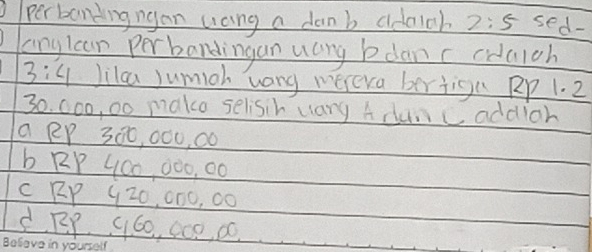 perbandingngan uang a dan b adalah 2:5 sed-
angkan perbandingan uang b dan c adalah
3:4 Jika jumlah uang mereka bertiga RP 1.2
30.000,00 maka selisih uang A dan C adalah
a RP 300,000,00
b RP 400,000,00
c RP 420,000,00
d RP 460,000,00
Believe in yourself